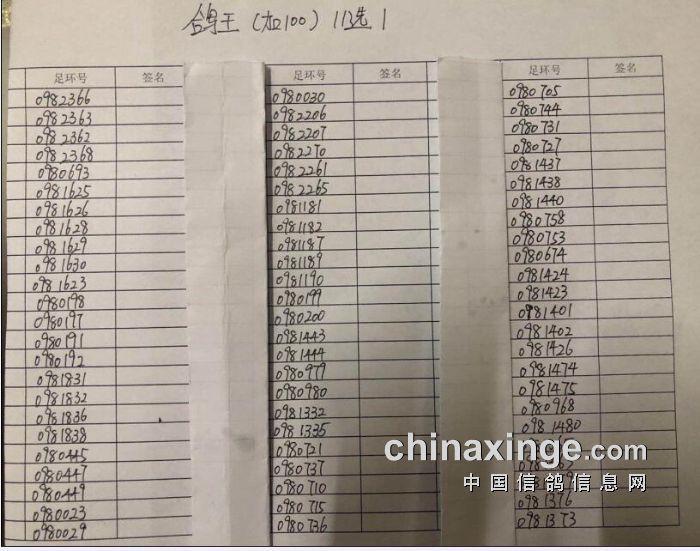 鸽王（加100）113选1
足环号 签名
0982366
0982363
0982362
0982368
0980693
0981625
0981626
0981628
0981629
0981630
0981623
0980198
0980197
0980191
0980192
0981831
0981832
0981836
0981838
0980445
0980447
0980449
0980023
0980029
足环号 签名
0980030
0982206
0982207
0982270
0982261
0982265
0981181
0981182
0981187
0981189
0981190
0980199
0980200
0981443
0981444
0980979
0980980
0981332
0981335
0980721
0980737
0980710
0980715
0980736
足环号 签名
0980705
0980744
0980731
0980727
0981437
0981438
0981440
0980758
0980753
0980674
0981424
0981423
0981401
0981402
0981426
0981474
0981475
0980968
0981480
0981376
0981373
chinaxinge.com
中国信鸽信息网